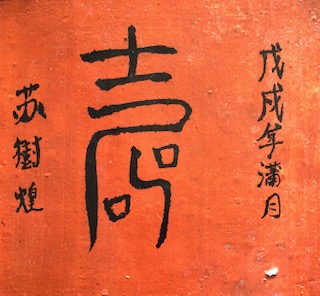 戊戌年蒲月
壽
苏樹煌